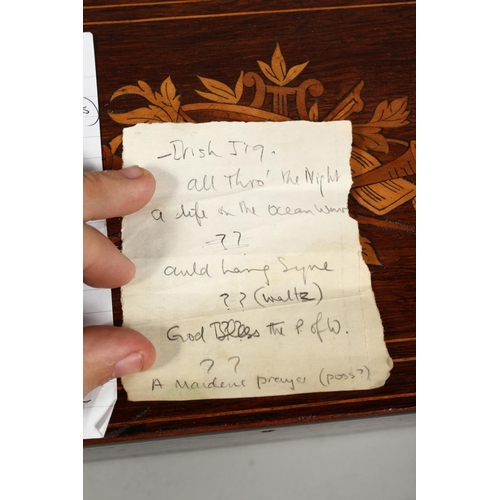 s)
- Irish Jig.
all Thro' the Night
a life on the ocean wave
??
auld Lang Syne
?? (waltz)
God Bless the P of W.
??
A Maidens prayer (poss?)